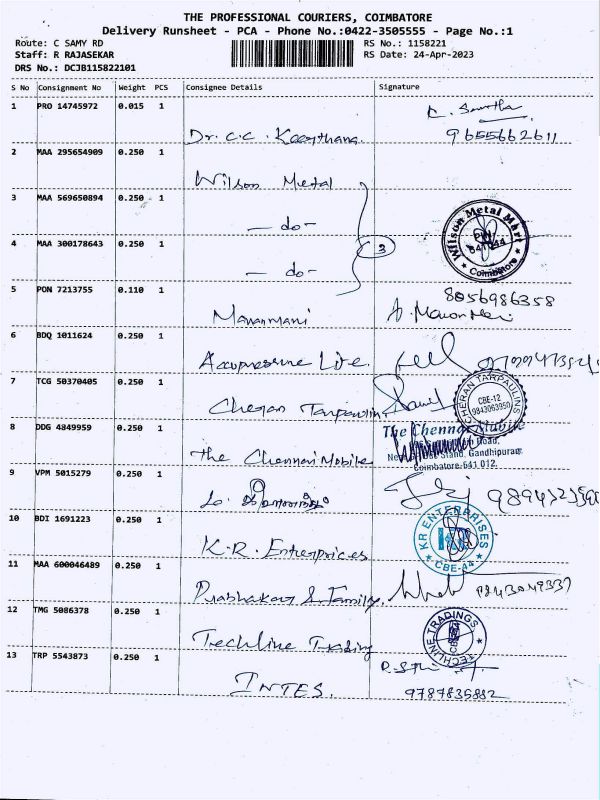 THE PROFESSIONAL COURIERS, COIMBATORE
Delivery Runsheet - PCA - Phone No.:0422-3505555 - Page No.:1
Route: C SAMY RD
RS No.: 1158221
Staff: R RAJASEKAR
RS Date: 24-Apr-2023
DRS No.: DCJB115822101
S No Consignment No Weight PCS Consignee Details Signature
1 PRO 14745972 0.015 1
Dr. C.C. 9655662611
2 MAA 295654909 0.250 1
Wilson Metal
3 MAA 569650894 0.250 1
- do -
Wilson Metal Mart Coimbatore
4 MAA 300178643 0.250 1
3
- do -
5 PON 7213755 0.110 1
8056986358
Mananmani
6 BDQ 1011624 0.250 1
Accupressure Life
7 TCG 50370405 0.250 1
CHERAN TARPAULINS CBE-12 9843063950
Cheran Tarpaulin
8 DDG 4849959 0.250 1
The Chennai Mobile
Road,
Stand, Gandhipuram
The Chennai Mobile
Coimbatore-641 012.
9 VPM 5015279 0.250 1
10 BDI 1691223 0.250 1
KR ENTERPRISES KR CBE-44
K.R. Enterprices
11 MAA 600046489 0.250 1
Prabhakar & Family
12 TMG 5086378 0.250 1
TECHLINE TRADINGS
Techline Trading
13 TRP 5543873 0.250 1
INTES. 9787835882